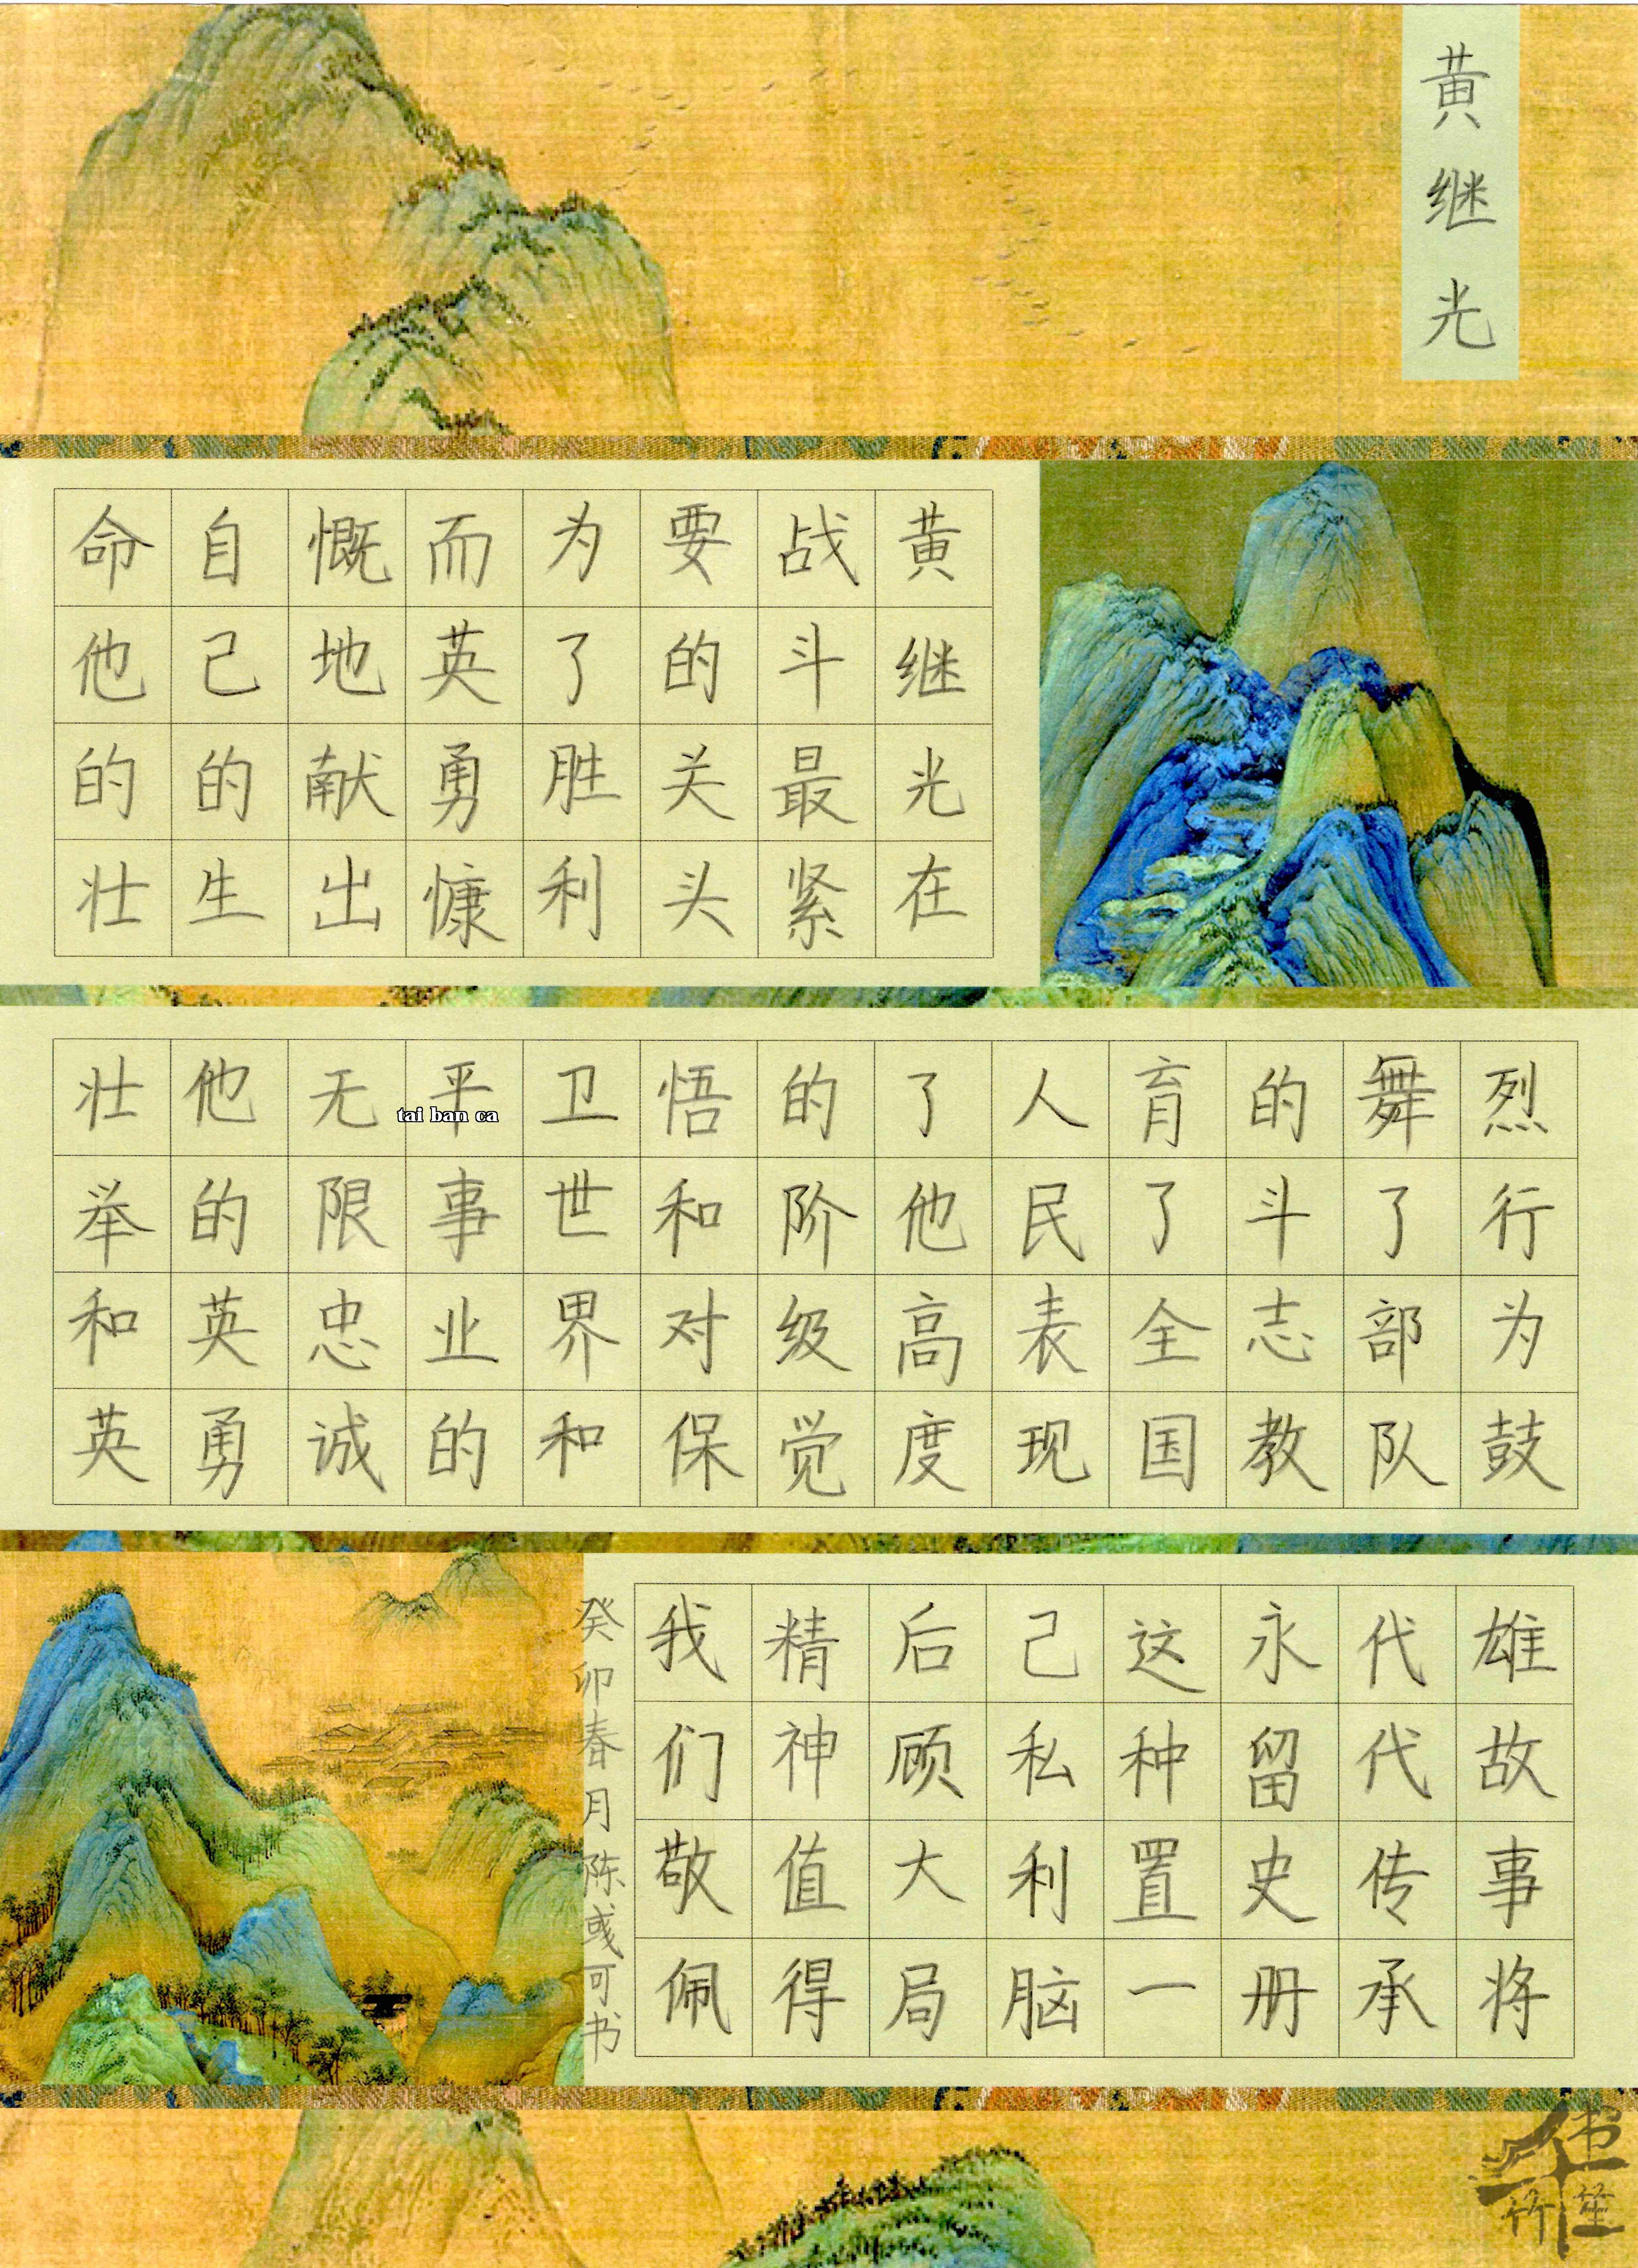 黄继光
黄继光在
战斗最紧
要的关头
为了胜利
而英勇慷
慨地献出
自己的生
命他的壮
烈行为鼓
舞了部队
的斗志教
育了全国
人民表现
了他高度
的阶级觉
悟和对保
卫世界和
平事业的
无限忠诚
他的英勇
壮举和英
雄故事将
代代传承
永留史册
这种置一
己私利脑
后顾大局
精神值得
我们敬佩
癸卯春月陈彧可书
tai ban ca